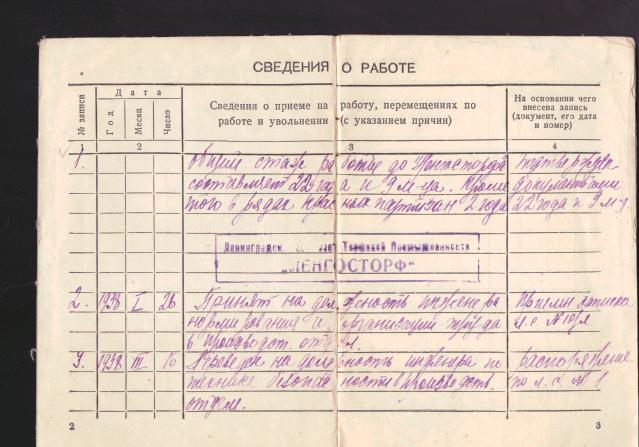 СВЕДЕНИЯ О РАБОТЕ
№ записи
Дата
Год
Месяц
Число
Сведения о приеме на работу, перемещениях по
работе и увольнении (с указанием причин)
На основании чего
внесена запись
(документ, его дата
и номер)
1
2
3
4
1. Общий стаж работы до
составляет 22 года и 9 м-ца. Кроме
того в рядах красных партизан 2 года
22 года и 9 м-ц
Торфяной Промышленности
"ЛЕНГОСТОРФ"
2. 1938 I 26 Принят на должность инженера
нормирования и организации труда
в производст. отдел.
3. 1938 III 16 Переведен на должность инженера по
технике безопасности в производств.
отдел.
распоряжение
по л.с. № 1
2
3